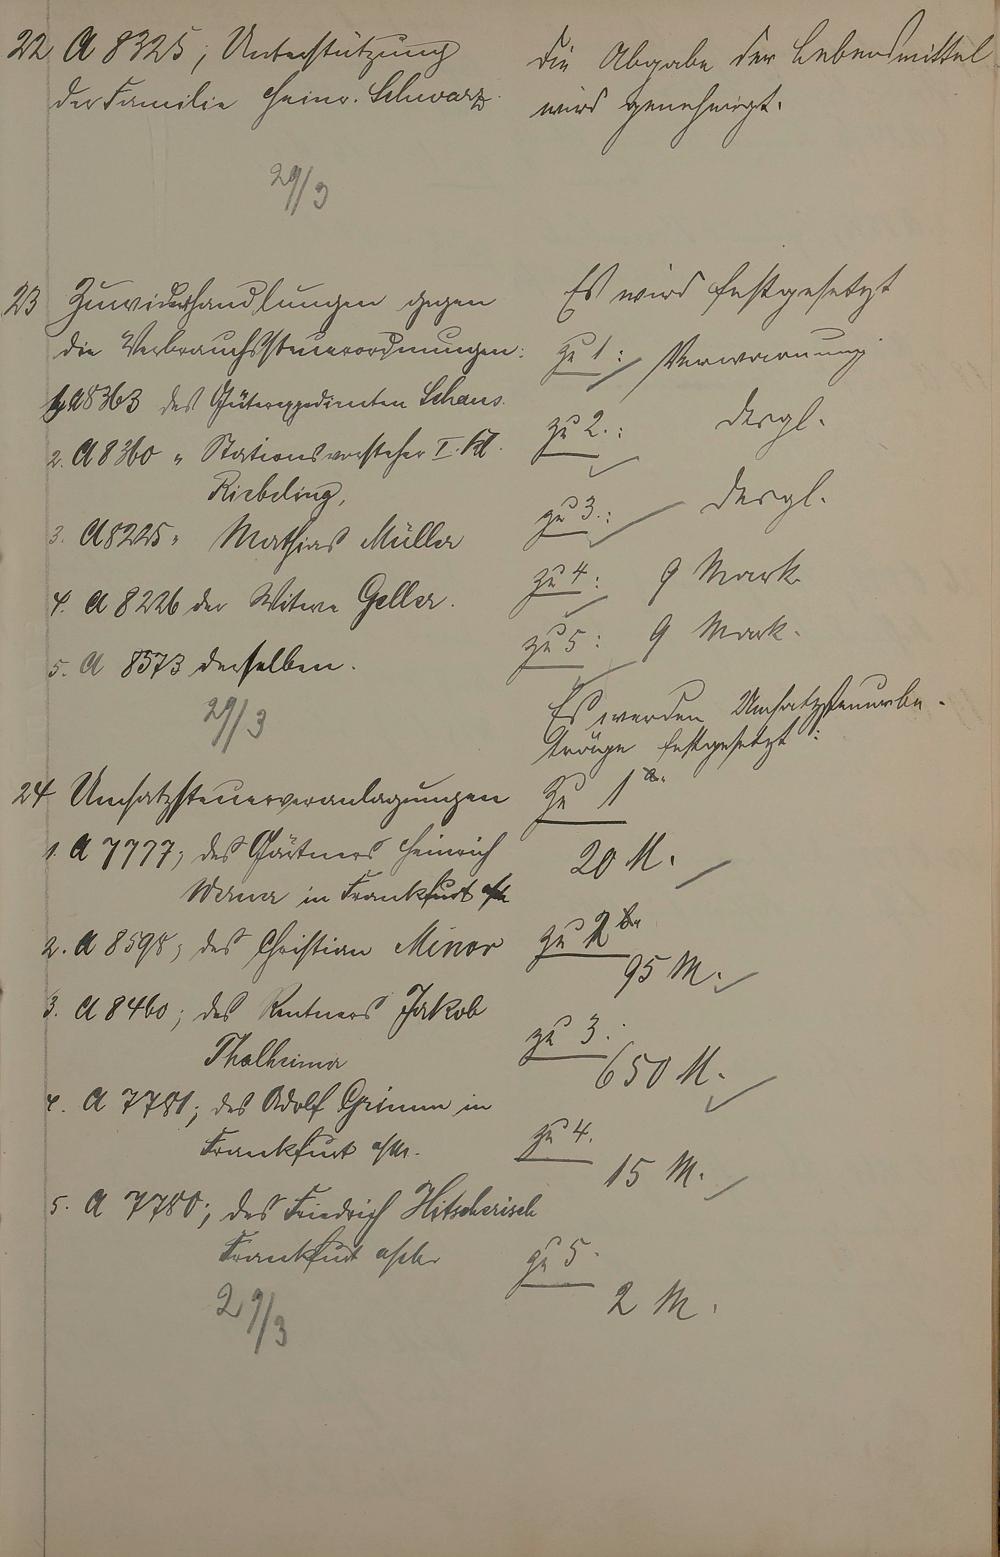 22 A 8325, Unterstützung
der Familie Heinr. Schwarz.
die Abgabe der Lebensmittel
wird genehmigt.
29/3
23 Zuwiderhandlungen gegen
die Verbrauchssteuerordnungen:
1. A 8363 des Güterexpedienten Schaus.
2. A 8360 " Stationsvorsteher I. Kl.
Riebeling,
3. A 8225 " Mathias Müller
4. A 8226 der Witwe Geller.
5. A 8573 derselben.
29/3
Es wird festgesetzt
zu 1: Verwarnung
zu 2.: desgl.
zu 3.: desgl.
zu 4: 9 Mark.
zu 5: 9 Mark.
24 Umsatzsteuerveranlagungen
1. A 7777, des Gärtners Heinrich
in Frankfurt a/M
2. A 8598, des Christian Minor
3. A 8460, des Rentners Jakob
Thalheimer
4. A 7781, des Adolf Grimm in
Frankfurt a/M.
5. A 7780, des Friedrich Hitscherich
Frankfurt a/M.
29/3
Es werden Umsatzsteuerbe-
träge festgesetzt:
Zu 1 a.
20 M.
zu 2 b.
95 M.
zu 3.
650 M.
zu 4.
15 M.
zu 5.
2 M.